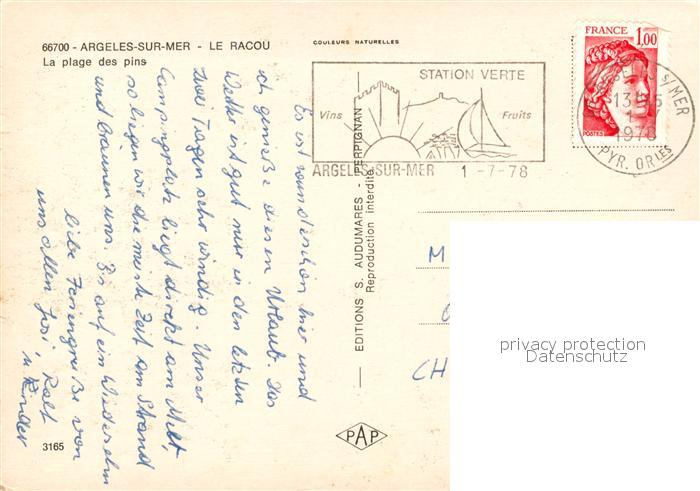 66700 - ARGELES-SUR-MER - LE RACOU
La plage des pins
COULEURS NATURELLES
STATION VERTE
Vins
Fruits
ARGELES-SUR-MER 1 -7-78
FRANCE 1,00
POSTES
S/MER
13H
1978
PYR. ORLES
Es ist wunderschön hier und
ich genieße diesen Urlaub. Das
Wetter ist gut nur in den letzten
zwei Tagen sehr windig. Unser
Campingplatz liegt direkt am
so liegen wir die meiste Zeit am Strand
und bräunen uns. Bis auf ein Wiedersehn
liebe Feriengrüße von
uns allen Josi, Ralf
u Kinder
EDITIONS S. AUDUMARES - PERPIGNAN
Reproduction interdite
M
CH
privacy protection
Datenschutz
PAP
3165